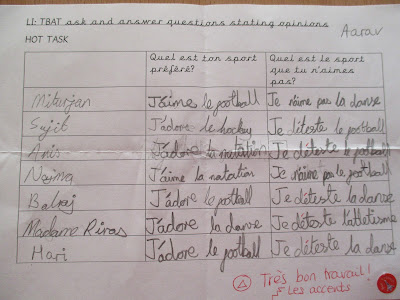 LI: TBAT ask and answer questions stating opinions
Aarav
HOT TASK
Quel est ton sport préféré? Quel est le sport que tu n'aimes pas?
Miturjan J'aime le football Je n'aime pas la danse
Sujit J'adore le hockey Je déteste le football
Anis J'adore la natation Je déteste le football
Naima J'aime la natation Je n'aime pas le football
Balraj J'adore le football Je déteste la danse
Madame Rivas J'adore la danse Je déteste l'athletisme
Hari J'adore le football Je déteste la danse
Très bon travail!
Les accents